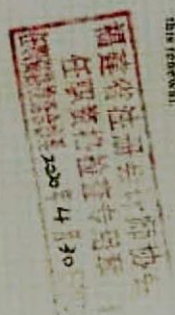 this renewal.
福建省注册会计师协会
任职资格检查专用章
2020年4月30